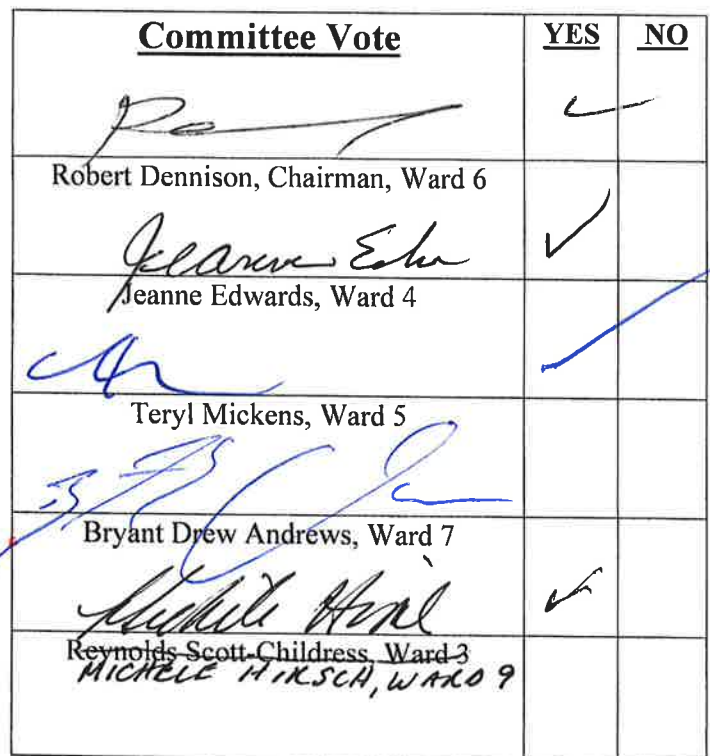 Committee Vote YES NO
Robert Dennison, Chairman, Ward 6
Jeanne Edwards, Ward 4
Teryl Mickens, Ward 5
Bryant Drew Andrews, Ward 7
Michele Hirsch
Reynolds Scott-Childress, Ward 3
MICHELE HIRSCH, WARD 9